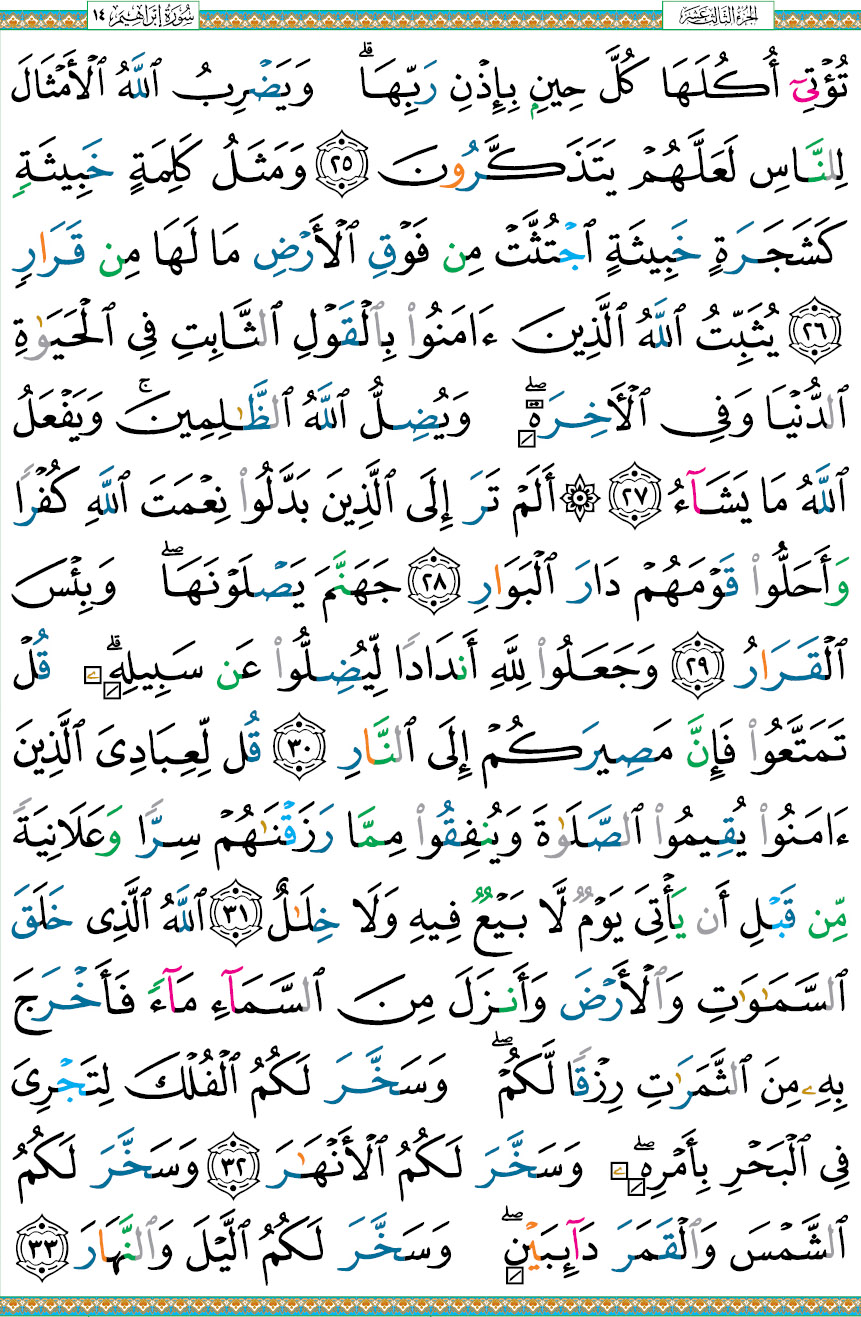 الجزء الثالث عشر سُورَةُ إِبْرَاهِيمَ ١٤
تُؤْتِىٓ أُكُلَهَا كُلَّ حِينٍۭ بِإِذْنِ رَبِّهَاۗ وَيَضْرِبُ ٱللَّهُ ٱلْأَمْثَالَ
لِلنَّاسِ لَعَلَّهُمْ يَتَذَكَّرُونَ ٢٥ وَمَثَلُ كَلِمَةٍ خَبِيثَةٍ
كَشَجَرَةٍ خَبِيثَةٍ ٱجْتُثَّتْ مِن فَوْقِ ٱلْأَرْضِ مَا لَهَا مِن قَرَارٍ
٢٦ يُثَبِّتُ ٱللَّهُ ٱلَّذِينَ ءَامَنُوا۟ بِٱلْقَوْلِ ٱلثَّابِتِ فِى ٱلْحَيَوٰةِ
ٱلدُّنْيَا وَفِى ٱلْأَخِرَةِۖ وَيُضِلُّ ٱللَّهُ ٱلظَّٰلِمِينَۚ وَيَفْعَلُ
ٱللَّهُ مَا يَشَآءُ ٢٧ ۞ أَلَمْ تَرَ إِلَى ٱلَّذِينَ بَدَّلُوا۟ نِعْمَتَ ٱللَّهِ كُفْرًا
وَأَحَلُّوا۟ قَوْمَهُمْ دَارَ ٱلْبَوَارِ ٢٨ جَهَنَّمَ يَصْلَوْنَهَاۖ وَبِئْسَ
ٱلْقَرَارُ ٢٩ وَجَعَلُوا۟ لِلَّهِ أَندَادًا لِّيُضِلُّوا۟ عَن سَبِيلِهِۦۗ قُلْ
تَمَتَّعُوا۟ فَإِنَّ مَصِيرَكُمْ إِلَى ٱلنَّارِ ٣٠ قُل لِّعِبَادِىَ ٱلَّذِينَ
ءَامَنُوا۟ يُقِيمُوا۟ ٱلصَّلَوٰةَ وَيُنفِقُوا۟ مِمَّا رَزَقْنَٰهُمْ سِرًّا وَعَلَانِيَةً
مِّن قَبْلِ أَن يَأْتِىَ يَوْمٌ لَّا بَيْعٌ فِيهِ وَلَا خِلَٰلٌ ٣١ ٱللَّهُ ٱلَّذِى خَلَقَ
ٱلسَّمَٰوَٰتِ وَٱلْأَرْضَ وَأَنزَلَ مِنَ ٱلسَّمَآءِ مَآءً فَأَخْرَجَ
بِهِۦ مِنَ ٱلثَّمَرَٰتِ رِزْقًا لَّكُمْۖ وَسَخَّرَ لَكُمُ ٱلْفُلْكَ لِتَجْرِىَ
فِى ٱلْبَحْرِ بِأَمْرِهِۦۖ وَسَخَّرَ لَكُمُ ٱلْأَنْهَٰرَ ٣٢ وَسَخَّرَ لَكُمُ
ٱلشَّمْسَ وَٱلْقَمَرَ دَآئِبَيْنِۖ وَسَخَّرَ لَكُمُ ٱلَّيْلَ وَٱلنَّهَارَ ٣٣